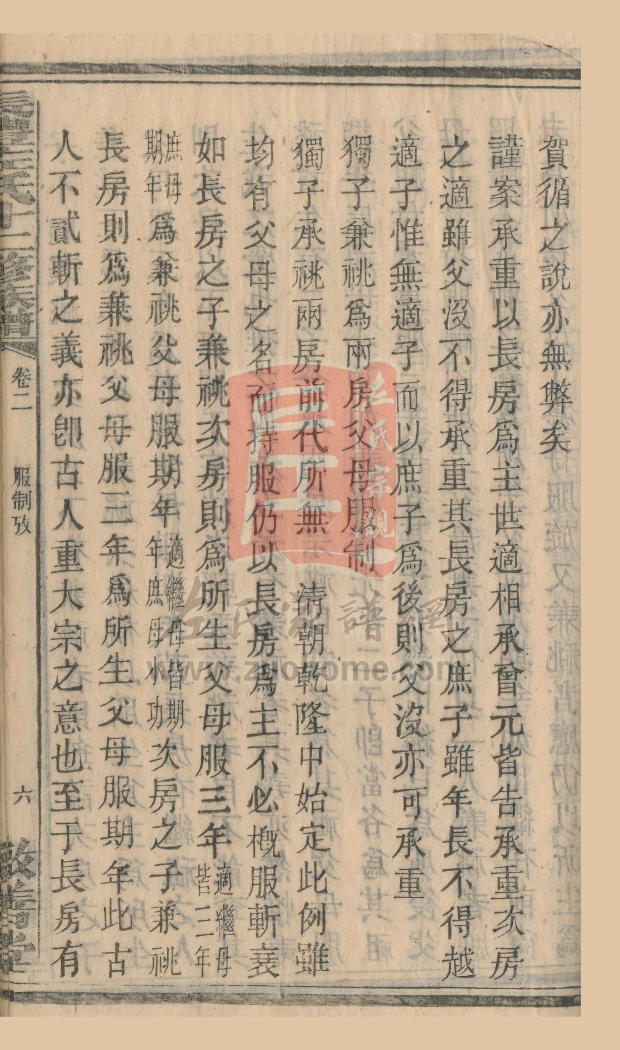 賀循之說亦無弊矣
謹案承重以長房爲主世適相承曾元皆吿承重次房
之適雖父没不得承重其長房之庶子雖年長不得越
適子惟無適子而以庶子爲後則父没亦可承重
獨子兼祧爲兩房父母服制
獨子承祧兩房前代所無 清朝乾隆中始定此例雖
均有父母之名而持服仍以長房爲主不必槪服斬衰
如長房之子兼祧次房則爲所生父母服三年適繼母皆三年
庶母期年爲兼祧父母服期年適繼母皆期年庶母小功次房之子兼祧
長房則爲兼祧父母服三年爲所生父母服期年此古
人不貳斬之義亦卽古人重大宗之意也至于長房有
長豐王氏十二修族譜 卷二 服制攷 六
王氏宗親
www.zjlohome.com